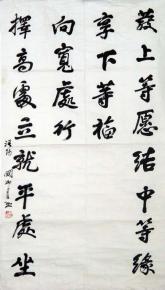 發上等愿结中等緣
享下等福
擇高處立就平處坐
向寬處行